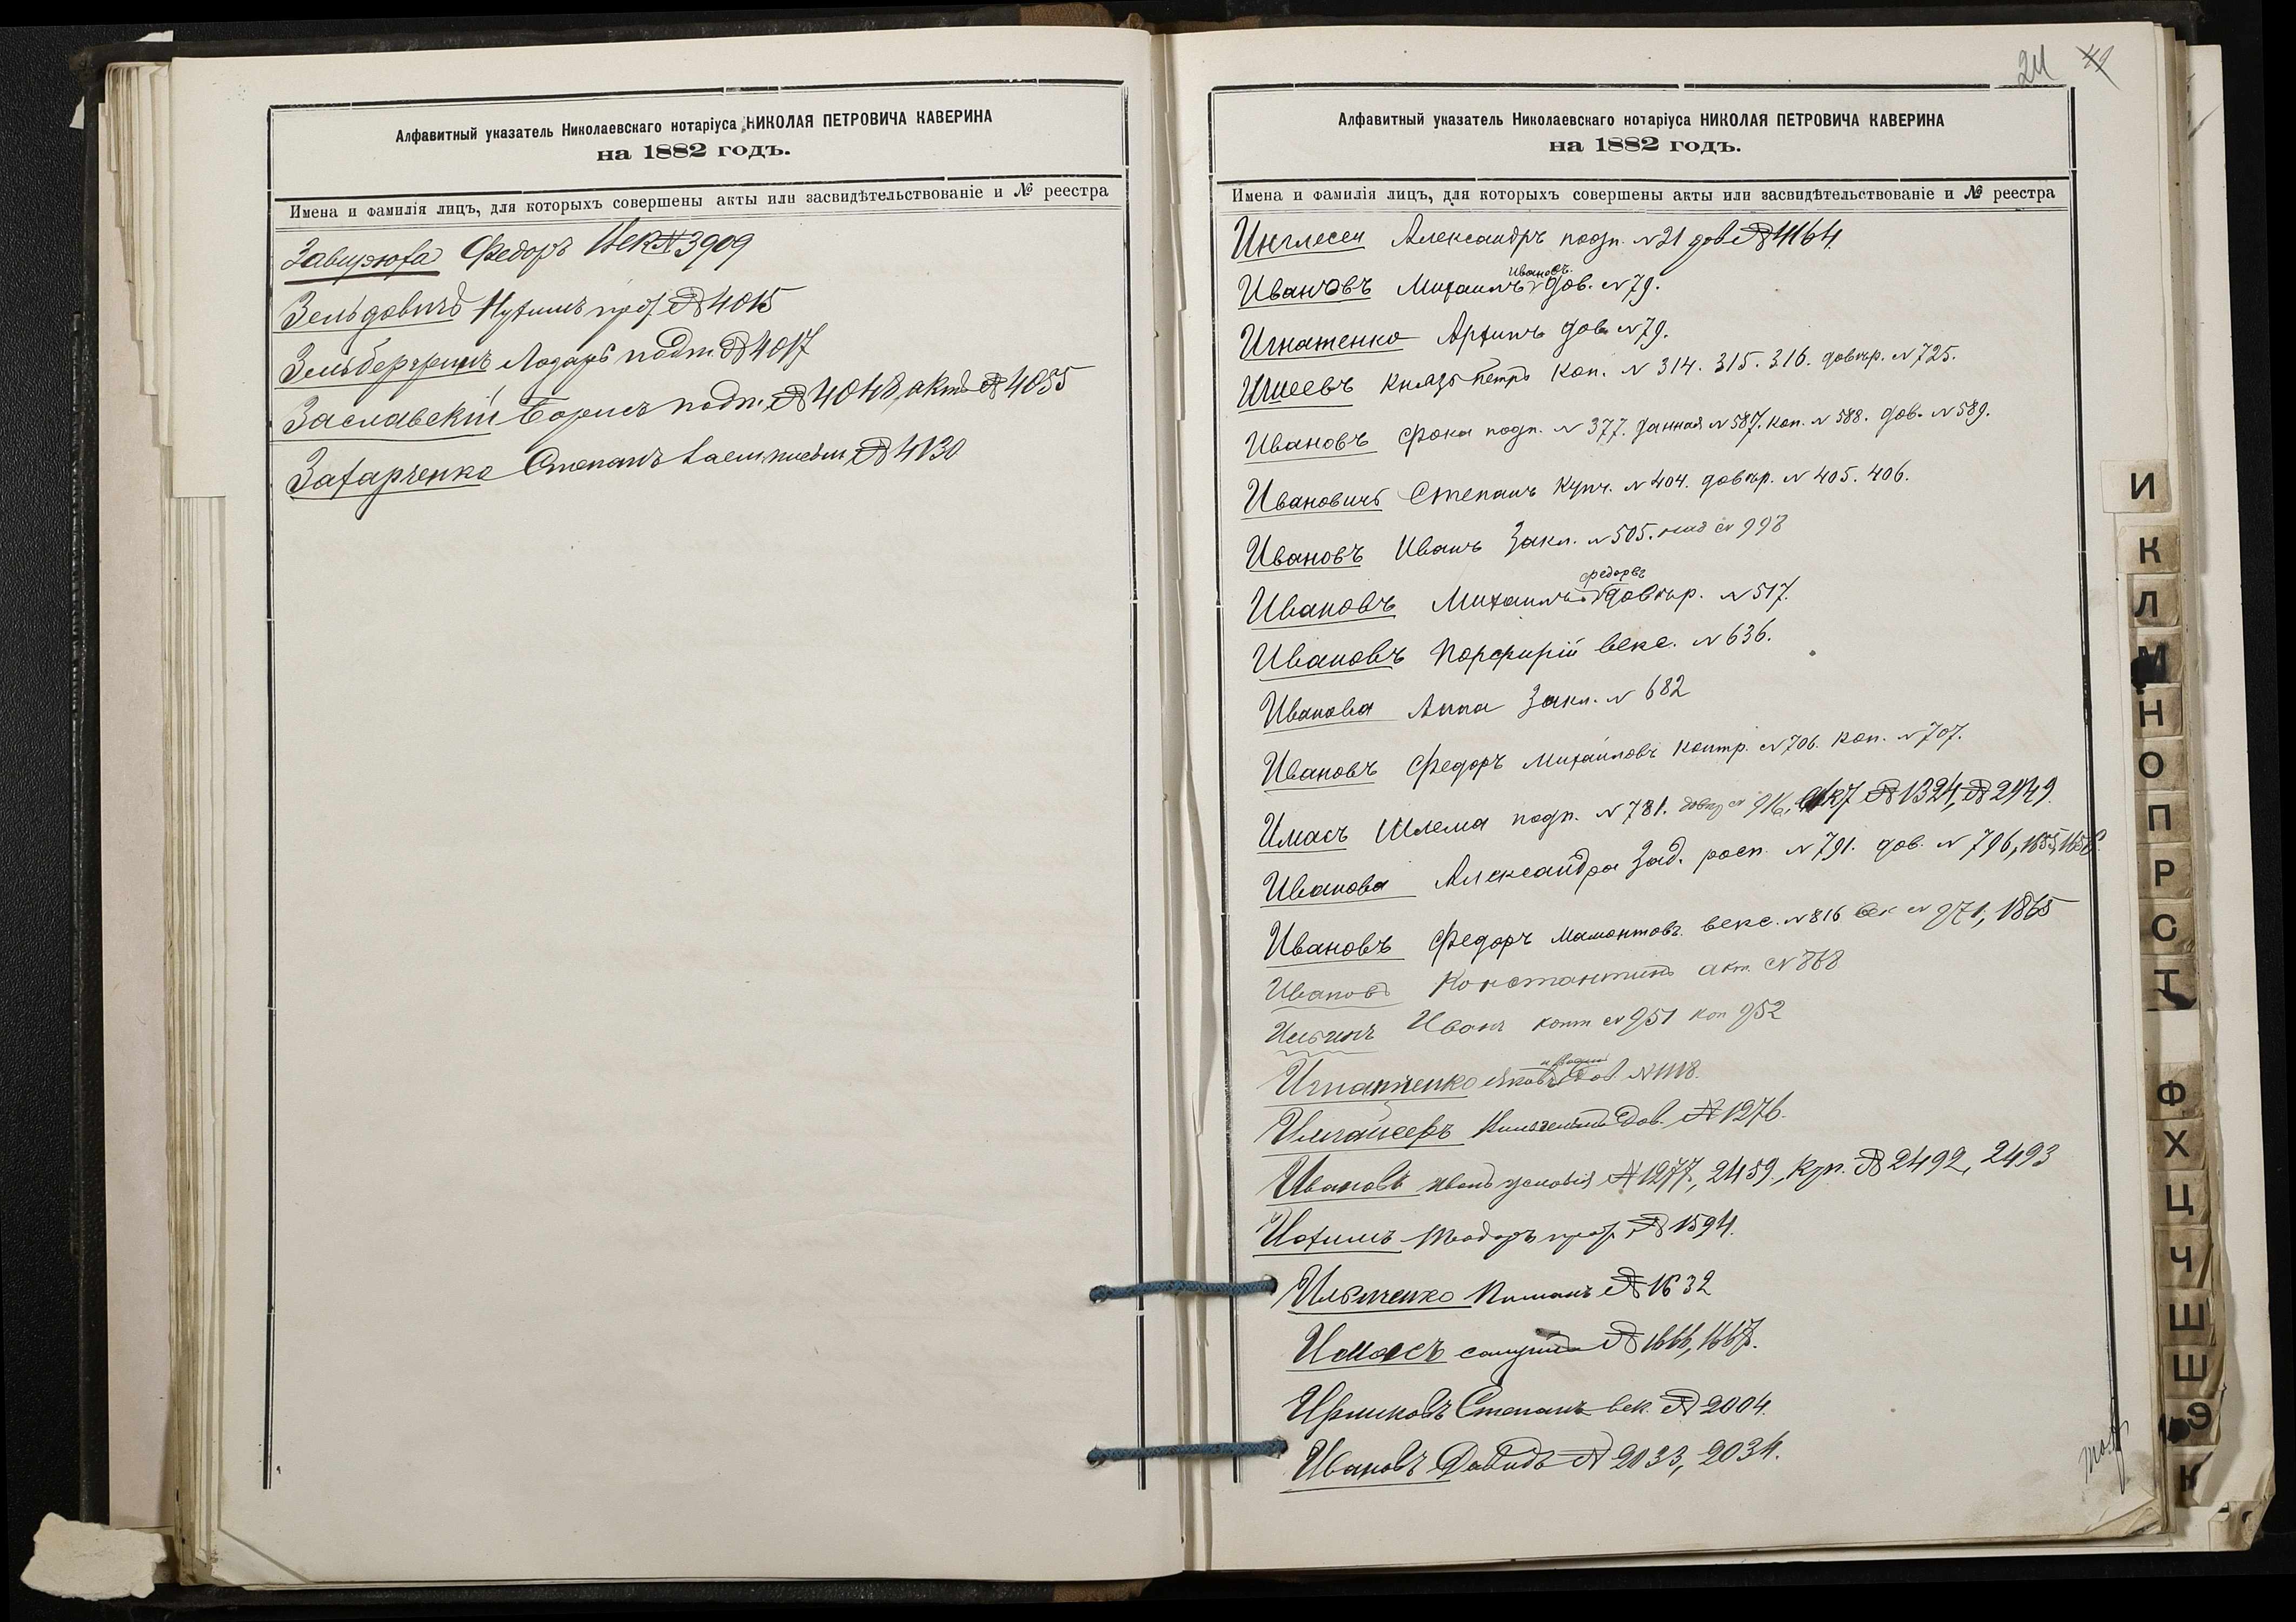 Алфавитный указатель Николаевскаго нотаріуса НИКОЛАЯ ПЕТРОВИЧА КАВЕРИНА
на 1882 годъ.
Имена и фамилія лицъ, для которыхъ совершены акты или засвидѣтельствованіе и № реестра
Федоръ Век № 3909
Зельдовичъ № 4015
Зельбершинъ Лазарь подт. № 4017
Заславскій Борисъ подп. № 4048, актъ № 4055
Захарченко Степанъ № 4130
24
Алфавитный указатель Николаевскаго нотаріуса НИКОЛАЯ ПЕТРОВИЧА КАВЕРИНА
на 1882 годъ.
Имена и фамилія лицъ, для которыхъ совершены акты или засвидѣтельствованіе и № реестра
Инглесси Александръ подп. № 21 дов № 4164
Ивановъ Михаилъ Иванов. дов. № 79.
Игнатенко Архипъ дов № 79.
Князь Петръ коп. № 314. 315. 316. довѣр. № 725.
Ивановъ Фока подп. № 377. данная № 587. коп. № 588. дов. № 589.
Ивановичъ Степанъ купч. № 404. довѣр. № 405. 406.
Ивановъ Иванъ Закл. № 505. № 998
Ивановъ Михаилъ Федоръ довѣр. № 517.
Ивановъ Порфирій векс. № 636.
Иванова Анна Закл. № 682
Ивановъ Федоръ Михайловъ контр. № 706. коп. № 707.
Имасъ Шлема подп. № 781. довѣр № 916, № 1324, № 2949.
Иванова Александра Зад. росп. № 791. дов. № 796, 1655, 1656.
Ивановъ Федоръ Мамонтовъ векс. № 816 век № 971, 1865
Ивановъ Константинъ акт. № 868
Ильинъ Иванъ конт № 951 коп 952
Игнатенко Яковъ дов № 1118.
дов. № 1276.
Ивановъ Иванъ условія № 1277, 2459, куп. № 2492, 2493
№ 1594.
Ильченко № 1632
Имасъ № 1666, 1667.
Степанъ век. № 2004.
Ивановъ Давидъ № 2033, 2034.
И
К
Л
М
Н
О
П
Р
С
Т
Ф
Х
Ц
Ч
Ш
Ш
Э